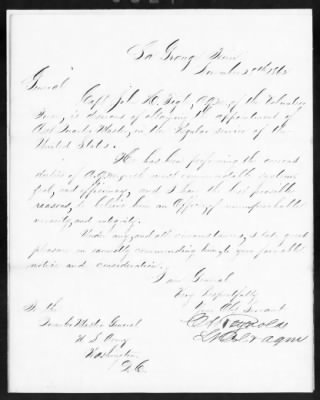 La Grange Tenn
November 29th 1862
General
Capt. Jno. H.             A.Q.M. of the Volunteer
        is desirous of obtaining the appointment of
Asst Quarter Master in the Regular service of the
United States.
He has been performing the
duties of A.Q.M. with most commendable
        and efficiency, and I have the best possible
reasons, to believe him an Officer of unimpeachable
        and integrity.
Under any and all circumstances, I take great
pleasure in earnestly commending him to your favorable
notice and consideration.
I am General
Very Respectfully
Your Obt Servant
C A Reynolds
Lt Col & aqm
To the
Quarter Master General
U S Army
Washington
D.C.